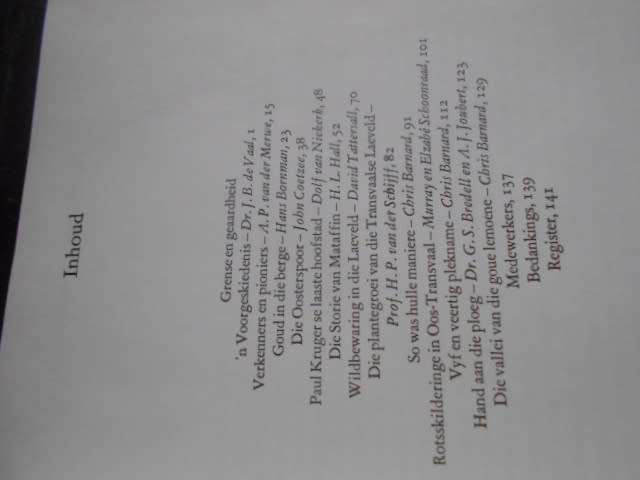 Inhoud
Grense en geaardheid
'n Voorgeskiedenis – Dr. J. B. de Vaal, 1
Verkenners en pioniers – A. P. van der Merwe, 15
Goud in die berge – Hans Bornman, 23
Die Oosterspoor – John Coetzee, 38
Paul Kruger se laaste hoofstad – Dolf van Niekerk, 48
Die Storie van Mataffin – H. L. Hall, 52
Wildbewaring in die Laeveld – David Tattersall, 70
Die plantegroei van die Transvaalse Laeveld –
Prof. H. P. van der Schijff, 82
So was hulle maniere – Chris Barnard, 91
Rotsskilderinge in Oos-Transvaal – Murray en Elzabé Schoonraad, 101
Vyf en veertig plekname – Chris Barnard, 112
Hand aan die ploeg – Dr. G. S. Bredell en A. J. Joubert, 123
Die vallei van die goue lemoene – Chris Barnard, 129
Medewerkers, 137
Bedankings, 139
Register, 141